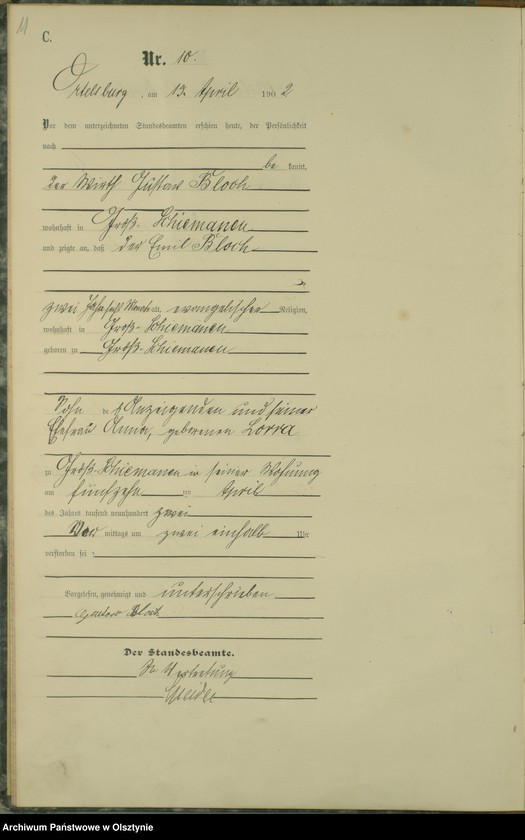 11
C.
Nr. 10.
Ortelsburg, am 19. April 1902
Vor dem unterzeichneten Standesbeamten erschien heute, der Persönlichkeit
nach
be kannt,
der Wirth Gustav Bloch
wohnhaft in Groß-Schiemanen
und zeigte an, daß der Emil Bloch
zwei Jahre alt, evangelischer Religion,
wohnhaft in Groß-Schiemanen
geboren zu Groß-Schiemanen
Sohn des Anzeigenden und seiner
Ehefrau Anna, geborenen Lorra
zu Groß-Schiemanen in seiner Wohnung
am fünfzehn ten April
des Jahres tausend neunhundert zwei
Vor mittags um zwei einhalb Uhr
verstorben sei
Vorgelesen, genehmigt und unterschrieben
Gustav Bloch
Der Standesbeamte.
In Vertretung
Archiwum Państwowe w Olsztynie